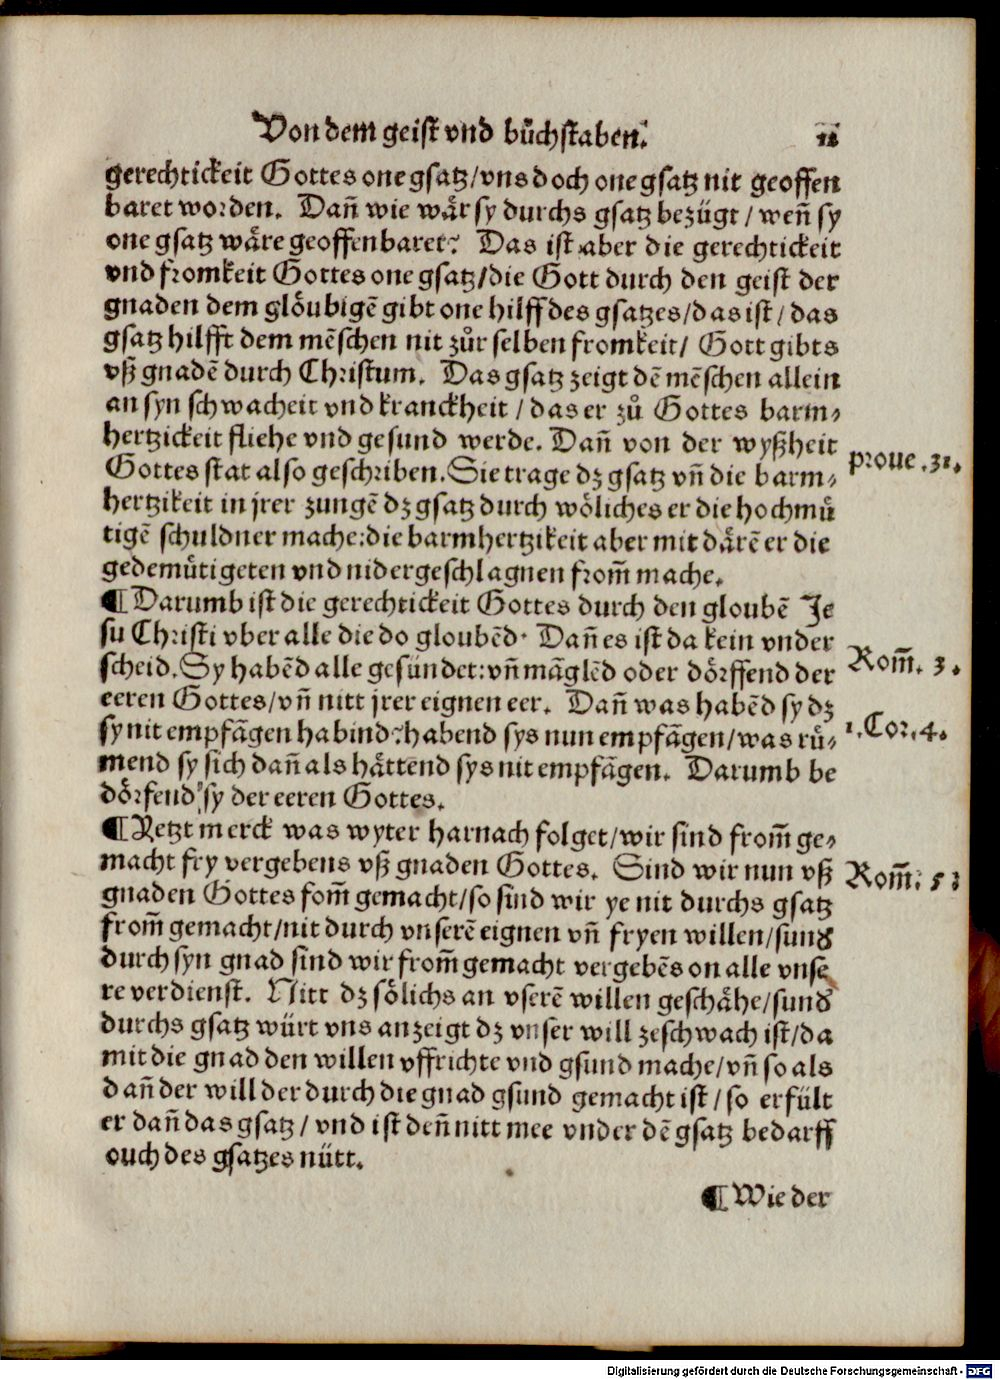 Von dem geist vnd bůchstaben. 12
gerechtickeit Gottes one gsatz/vns doch one gsatz nit geoffen
baret worden. Dañ wie wår sy durchs gsatz bezügt/weñ sy
one gsatz wåre geoffenbaret? Das ist aber die gerechtickeit
vnd fromkeit Gottes one gsatz/die Gott durch den geist der
gnaden dem glöubigē gibt one hilff des gsatzes/das ist/das
gsatz hilfft dem mēschen nit zůr selben fromkeit/ Gott gibts
vß gnadē durch Christum. Das gsatz zeigt dē mēschen allein
an syn schwacheit vnd kranckheit/das er zů Gottes barm⸗
hertzickeit fliehe vnd gesund werde. Dañ von der wyßheit
Gottes stat also geschriben. Sie trage dz gsatz vñ die barm⸗
prove.31.
hertzikeit in jrer zungē dz gsatz durch wöliches er die hochmů
tigē schuldner mache:die barmhertzikeit aber mit dårē er die
gedemůtigeten vnd nidergeschlagnen from̃ mache.
¶ Darumb ist die gerechtickeit Gottes durch den gloubē Je
su Christi vber alle die do gloubēd. Dañ es ist da kein vnder
scheid. Sy habēd alle gesündet:vñ māglēd oder dörffend der
Rom̃. 3.
eeren Gottes/vñ nitt jrer eignen eer. Dañ was habēd sy dz
sy nit empfāgen habind? habend sys nun empfāgen/was rů⸗
1. Cor. 4.
mend sy sich dañ als håttend sys nit empfāgen. Darumb be
dörfend sy der eeren Gottes.
¶ Yetzt merck was wyter harnach folget/wir sind from̃ ge⸗
macht fry vergebens vß gnaden Gottes. Sind wir nun vß
Rom̃. 5
gnaden Gottes fom̃ gemacht/so sind wir ye nit durchs gsatz
from̃ gemacht/nit durch vnserē eignen vñ fryen willen/sund̕
durch syn gnad sind wir from̃ gemacht vergebēs on alle vnse
re verdienst. Nitt dz sölichs an vserē willen geschåhe/sund̕
durchs gsatz würt vns anzeigt dz vnser will ze schwach ist/da
mit die gnad den willen vffrichte vnd gsund mache/vñ so als
dañ der will der durch die gnad gsund gemacht ist/so erfült
er dañ das gsatz/ vnd ist deñ nitt mee vnder dē gsatz bedarff
ouch des gsatzes nütt.
¶ Wie der
Digitalisierung gefördert durch die Deutsche Forschungsgemeinschaft - DFG